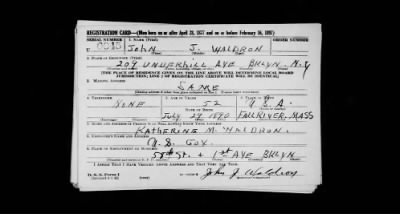 REGISTRATION CARD—(Men born on or after April 28, 1877 and on or before February 16, 1897)
SERIAL NUMBER 1. NAME (Print) ORDER NUMBER
U JOHN J. WALDRON
2. PLACE OF RESIDENCE (Print)
209 UNDERHILL AVE BKLYN. N.Y
[THE PLACE OF RESIDENCE GIVEN ON THE LINE ABOVE WILL DETERMINE LOCAL BOARD
JURISDICTION; LINE 2 OF REGISTRATION CERTIFICATE WILL BE IDENTICAL]
3. MAILING ADDRESS
SAME
4. TELEPHONE 5. AGE IN YEARS 6. PLACE OF BIRTH
NONE 52 U.S.A.
DATE OF BIRTH
JULY 27 1890 FALLRIVER, MASS
7. NAME AND ADDRESS OF PERSON WHO WILL ALWAYS KNOW YOUR ADDRESS
KATHERINE M. WALDRON.
8. EMPLOYER'S NAME AND ADDRESS
U.S. GOV.
9. PLACE OF EMPLOYMENT OR BUSINESS
58th St. + 1st AVE BKLYN
I AFFIRM THAT I HAVE VERIFIED ABOVE ANSWERS AND THAT THEY ARE TRUE.
D. S. S. Form 1 John J Waldron